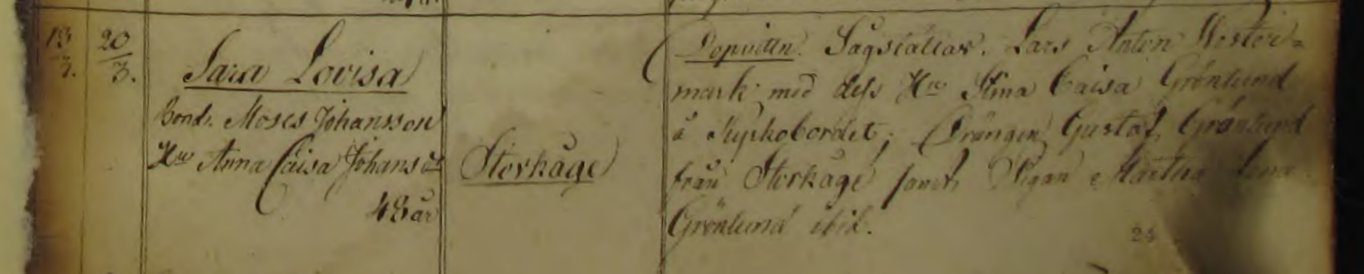 13/3. 20/3.
Sara Lovisa
Bond. Moses Johansson
Hu Anna Caisa Johansdr
48 år
Storkåge
Dopvittn. Sågställar. Lars Anton Wester=
mark med dess Hu Stina Caisa Grönlund
å ; Drängen Gustaf Grönlund
från Storkåge samt Pigan Martha Lena
Grönlund ibid.
24